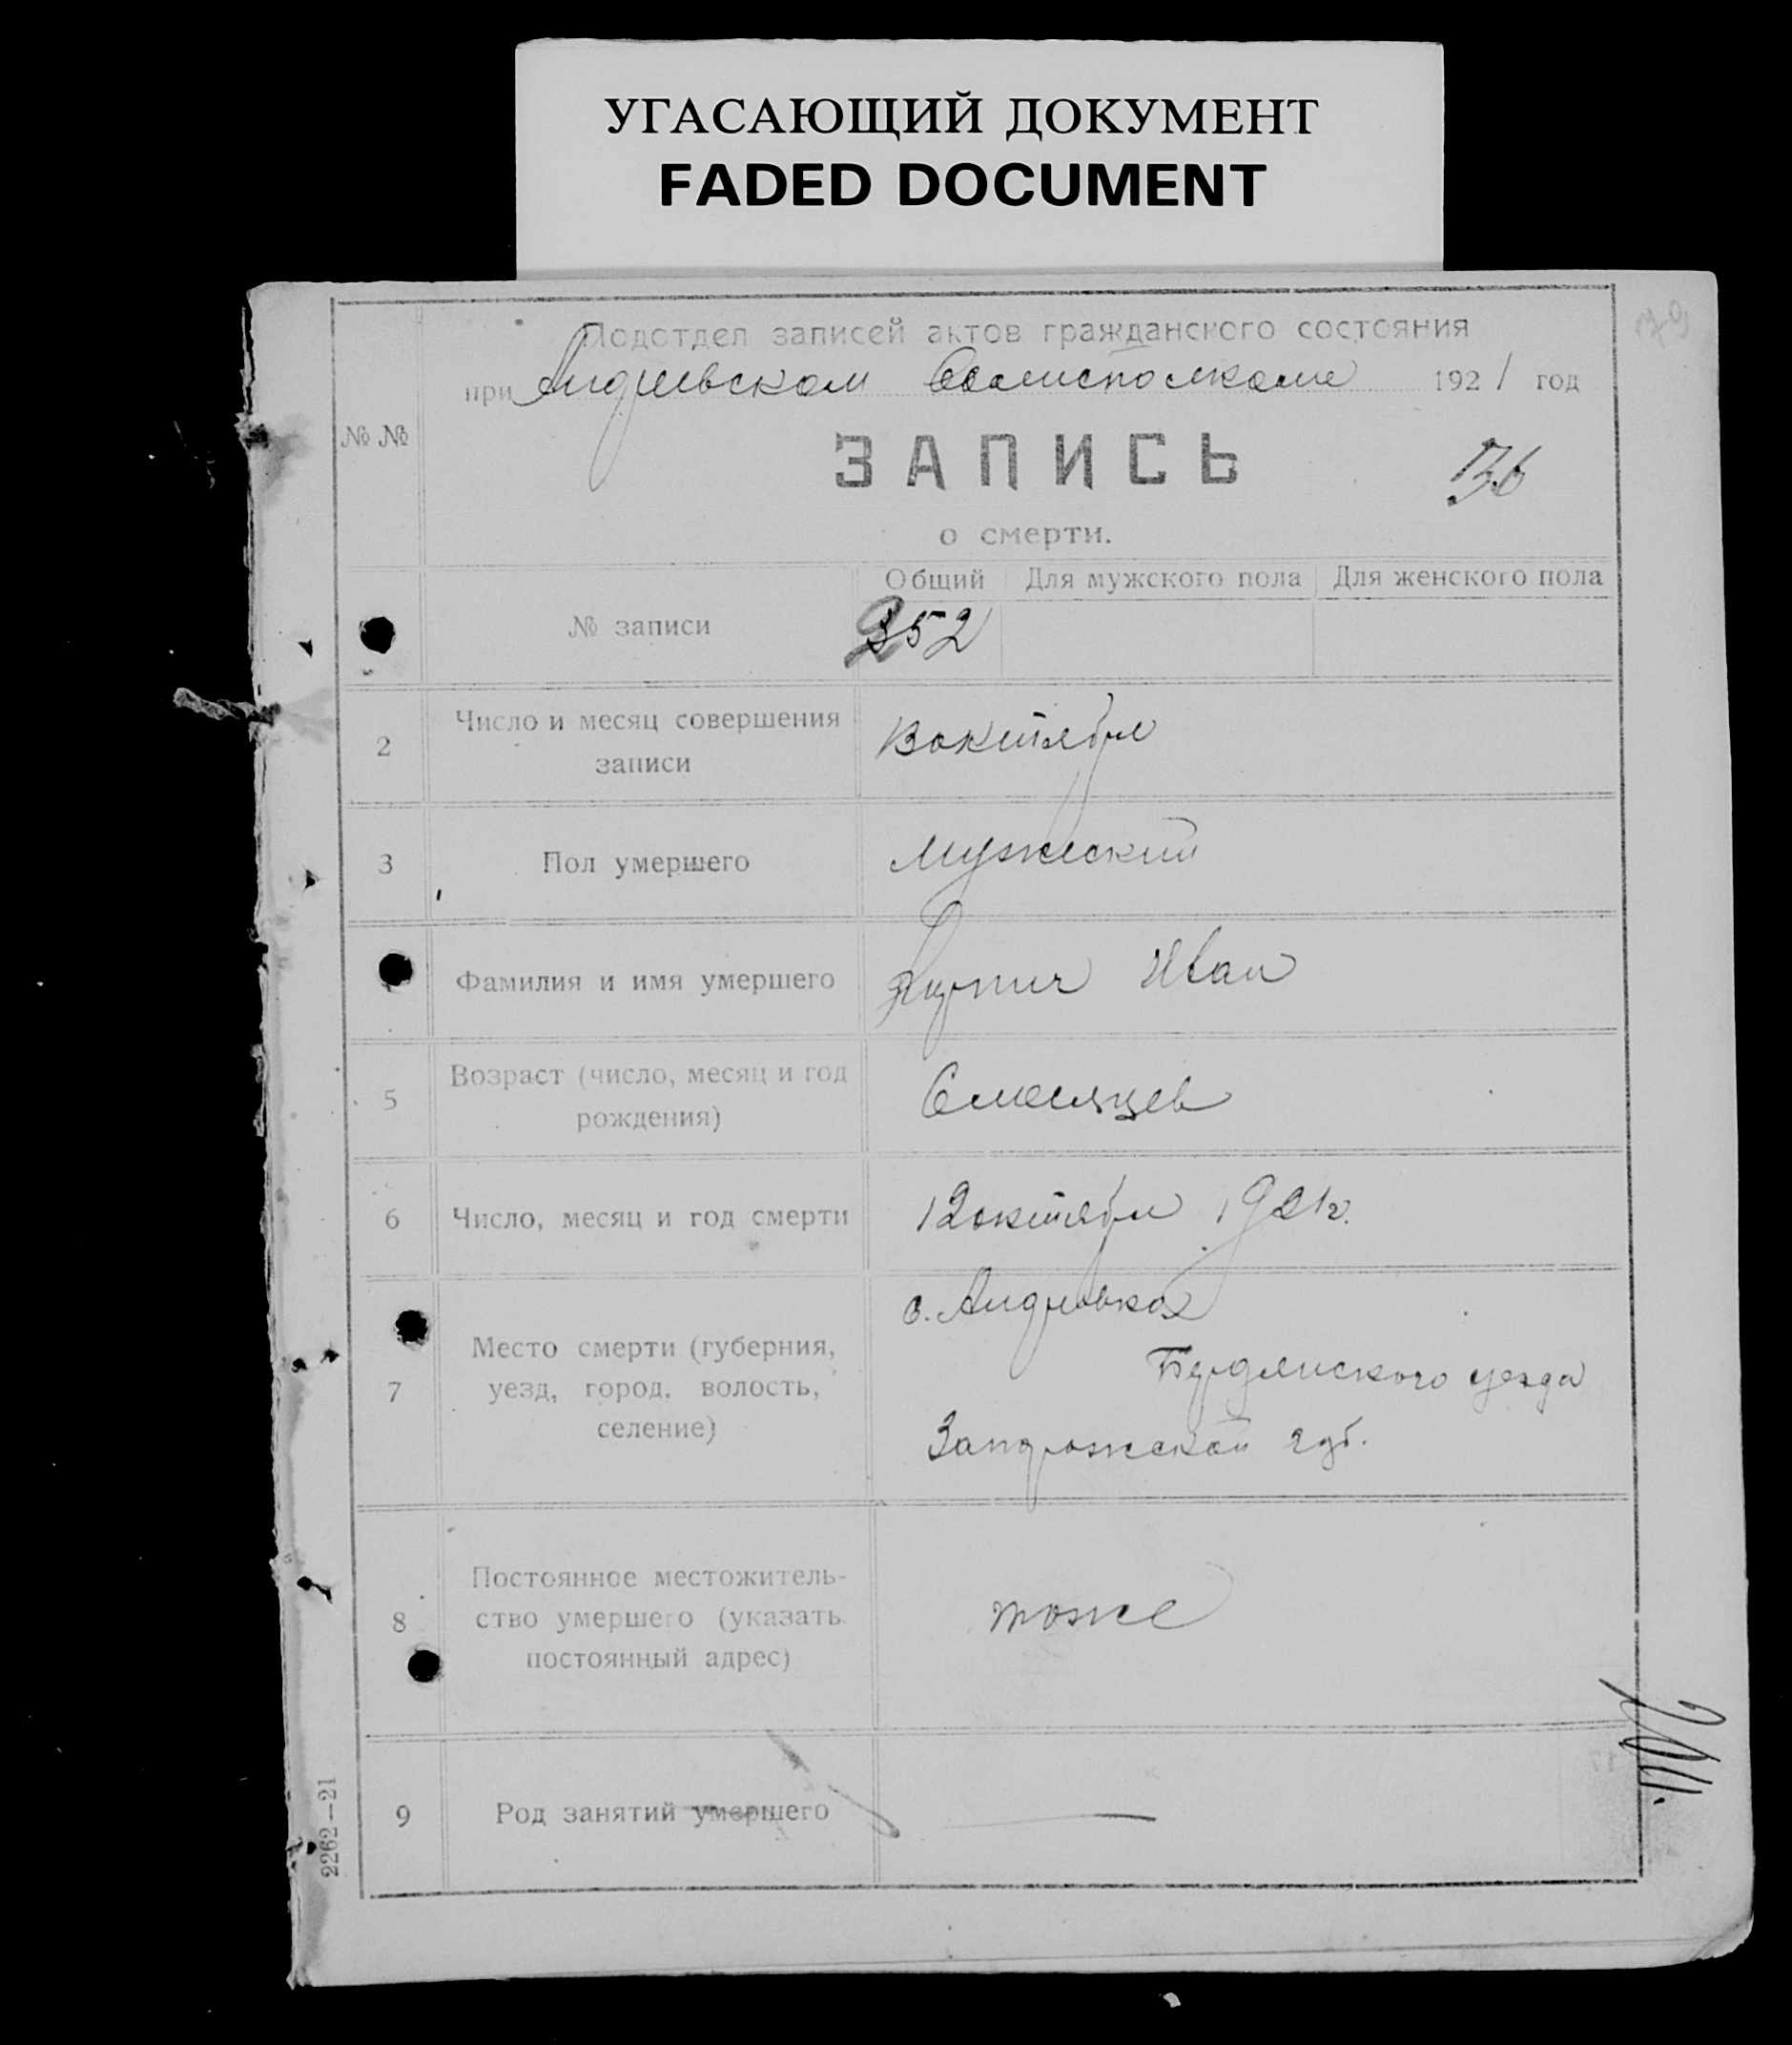 УГАСАЮЩИЙ ДОКУМЕНТ
FADED DOCUMENT
Подотдел записей актов гражданского состояния
при Андреевском Волисполкоме 1921 год
№ №
ЗАПИСЬ
136
о смерти.
Общий Для мужского пола Для женского пола
№ записи 252
2 Число и месяц совершения записи 13 октября
3 Пол умершего Мужеский
Фамилия и имя умершего Иван
5 Возраст (число, месяц и год рождения) 6 месяцев
6 Число, месяц и год смерти 12 октября 1921 г.
7 Место смерти (губерния, уезд, город, волость, селение) с. Андровка
Бердянского уезда
Запорожской губ.
8 Постоянное местожитель-
ство умершего (указать постоянный адрес) тоже
9 Род занятий умершего —
2262—21